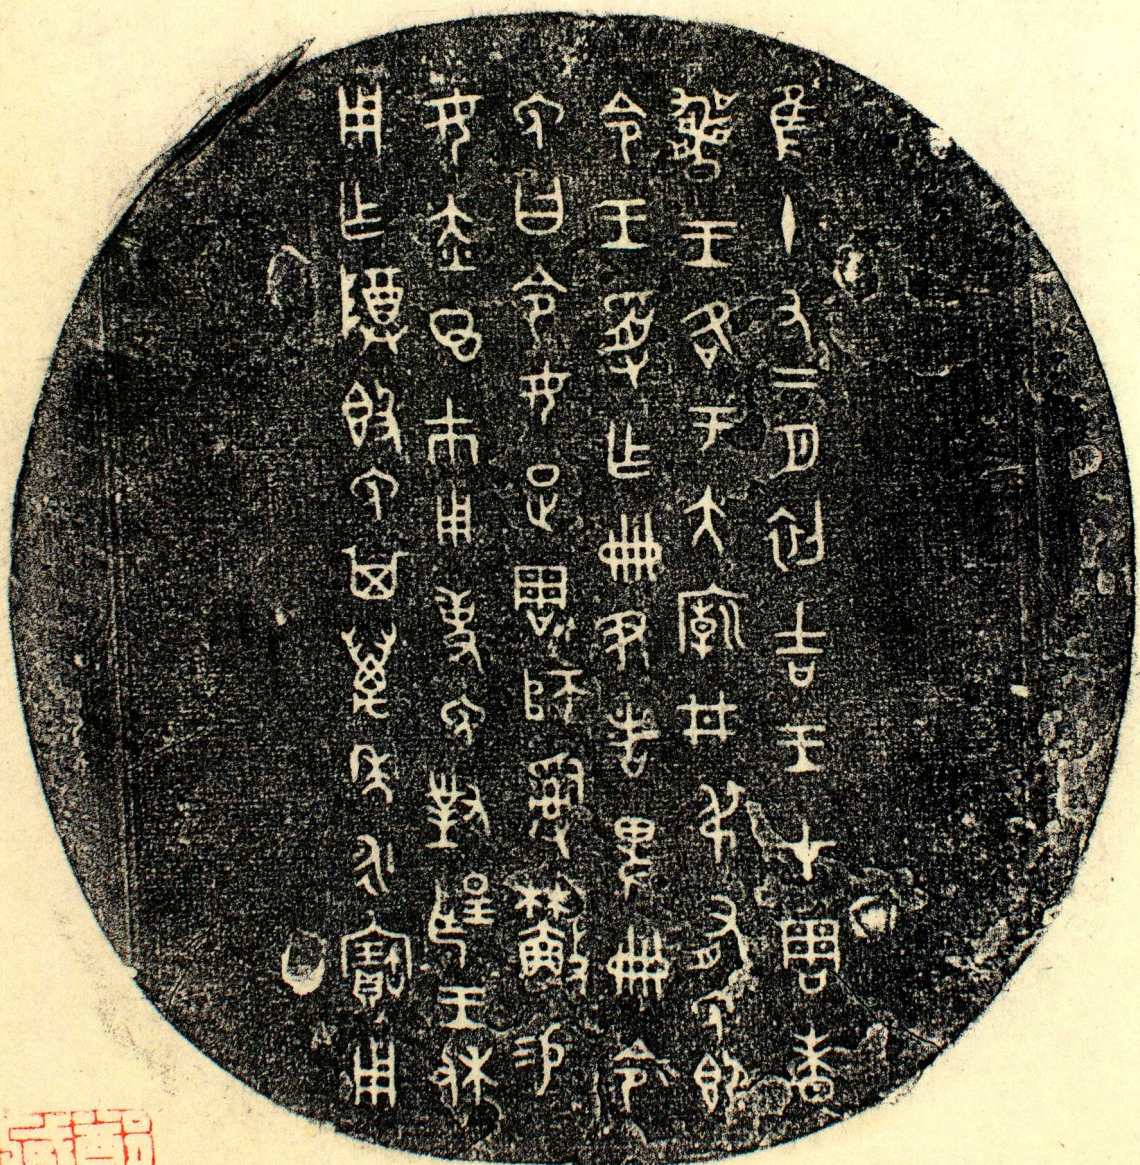 隹十又二月初吉王才周昧
爽王各于大廟井叔有免即
令王受乍冊尹者卑冊令
免曰令女疋周師𤔲易
女赤巿用事免對揚王休
用乍尊簋免其萬年永寶用